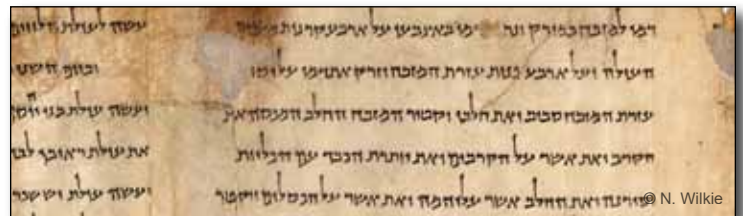 דמו למזבח במזרק באצבעו על ארבע קרנות
העולה ועל ארבע פנות עזרת המזבח וזרק את דמו על
עזרת המזבח סביב ואת חלבו יקטיר המזבחה החלב המכסה את
הקרב ואת אשר על הקרבים ואת יותרת הכבד עם הכליות
יסירנה ואת החלב אשר עליהמה ואת אשר על הכסלים ויקטר
עשה לעולת
וביום
ועשה עולת בני
את עולת ראובן
ועשה עולת
© N. Wilkie